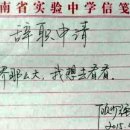 南省实验中学信笺
辞职申请
界那么大，我想去看看。